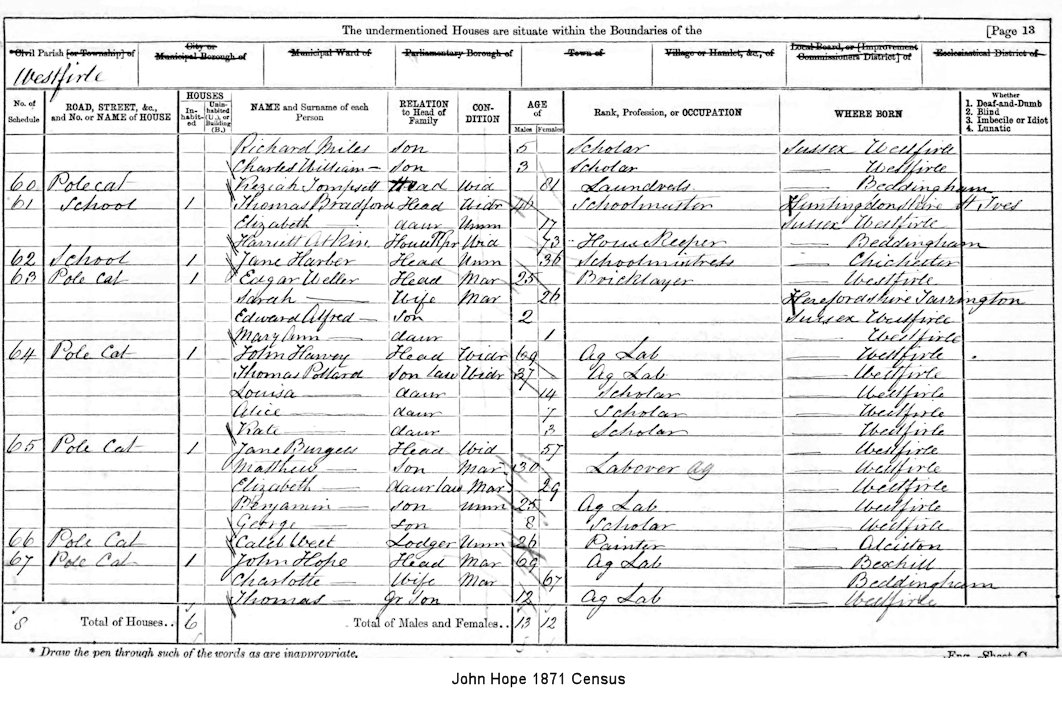 The undermentioned Houses are situate within the Boundaries of the [Page 13
Civil Parish [or Township] of City or Municipal Borough of Municipal Ward of Parliamentary Borough of Town of Village or Hamlet, &c., of Local Board, or [Improvement Commissioners District] of Ecclesiastical District of
Westfirle
No. of Schedule ROAD, STREET, &c., and No. or NAME of HOUSE HOUSES Inhabited Uninhabited (U.), or Building (B.) NAME and Surname of each Person RELATION to Head of Family CONDITION AGE of Males Females Rank, Profession, or OCCUPATION WHERE BORN Whether 1. Deaf-and-Dumb 2. Blind 3. Imbecile or Idiot 4. Lunatic
Richard Miles Son 5 Scholar Sussex Westfirle
Charles William — son 3 Scholar — Westfirle
60 Polecat Keziah Tompsett Head Wid 81 Laundress — Beddingham
61 School 1 Thomas Bradford Head Widr 46 Schoolmaster Huntingdonshire St Ives
Elizabeth daur Unm 17 Sussex Westfirle
Harriett Atkin House Kpr Wid 73 House Keeper — Beddingham
62 School 1 Jane Harber Head Unm 36 Schoolmistress — Chichester
63 Pole Cat 1 Edgar Weller Head Mar 25 Bricklayer — Westfirle
Sarah — Wife Mar 26 Herefordshire Tarrington
Edward Alfred — son 2 Sussex Westfirle
Mary Ann — daur 1 — Westfirle
64 Pole Cat 1 John Harvey Head Widr 69 Ag Lab — Westfirle
Thomas Pollard Son law Widr 37 Ag Lab — Westfirle
Louisa — daur 14 Scholar — Westfirle
Alice — daur 7 Scholar — Westfirle
Kate — daur 3 Scholar — Westfirle
65 Pole Cat 1 Jane Burgess Head Wid 57 — Westfirle
Matthew — son Mar 30 Labever Ag — Westfirle
Elizabeth — daur law Mar 29 — Westfirle
Benjamin — son unm 25 Ag Lab — Westfirle
George — son 8 Scholar — Westfirle
66 Pole Cat Caleb West Lodger Unm 26 Painter — Alciston
67 Pole Cat 1 John Hope Head Mar 69 Ag Lab — Bexhill
Charlotte — Wife Mar 67 — Beddingham
Thomas — Gr Son 12 Ag Lab — Westfirle
8 Total of Houses.. 6 Total of Males and Females.. 13 12
* Draw the pen through such of the words as are inappropriate.
John Hope 1871 Census